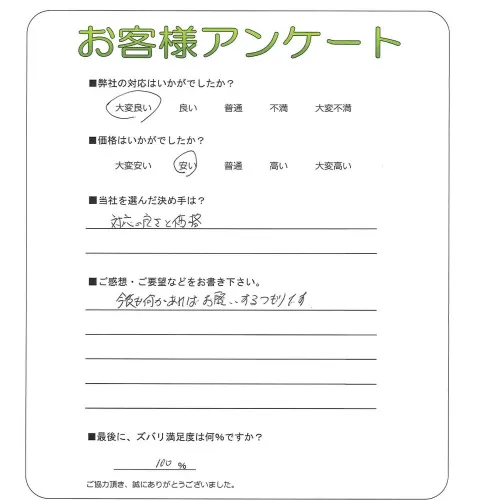 お客様アンケート
■弊社の対応はいかがでしたか？
大変良い 良い 普通 不満 大変不満
■価格はいかがでしたか？
大変安い 安い 普通 高い 大変高い
■当社を選んだ決め手は？
対応の良さと価格
■ご感想・ご要望などをお書き下さい。
今後も何かあればお願いするつもりです
■最後に、ズバリ満足度は何%ですか？
100 %
ご協力頂き、誠にありがとうございました。